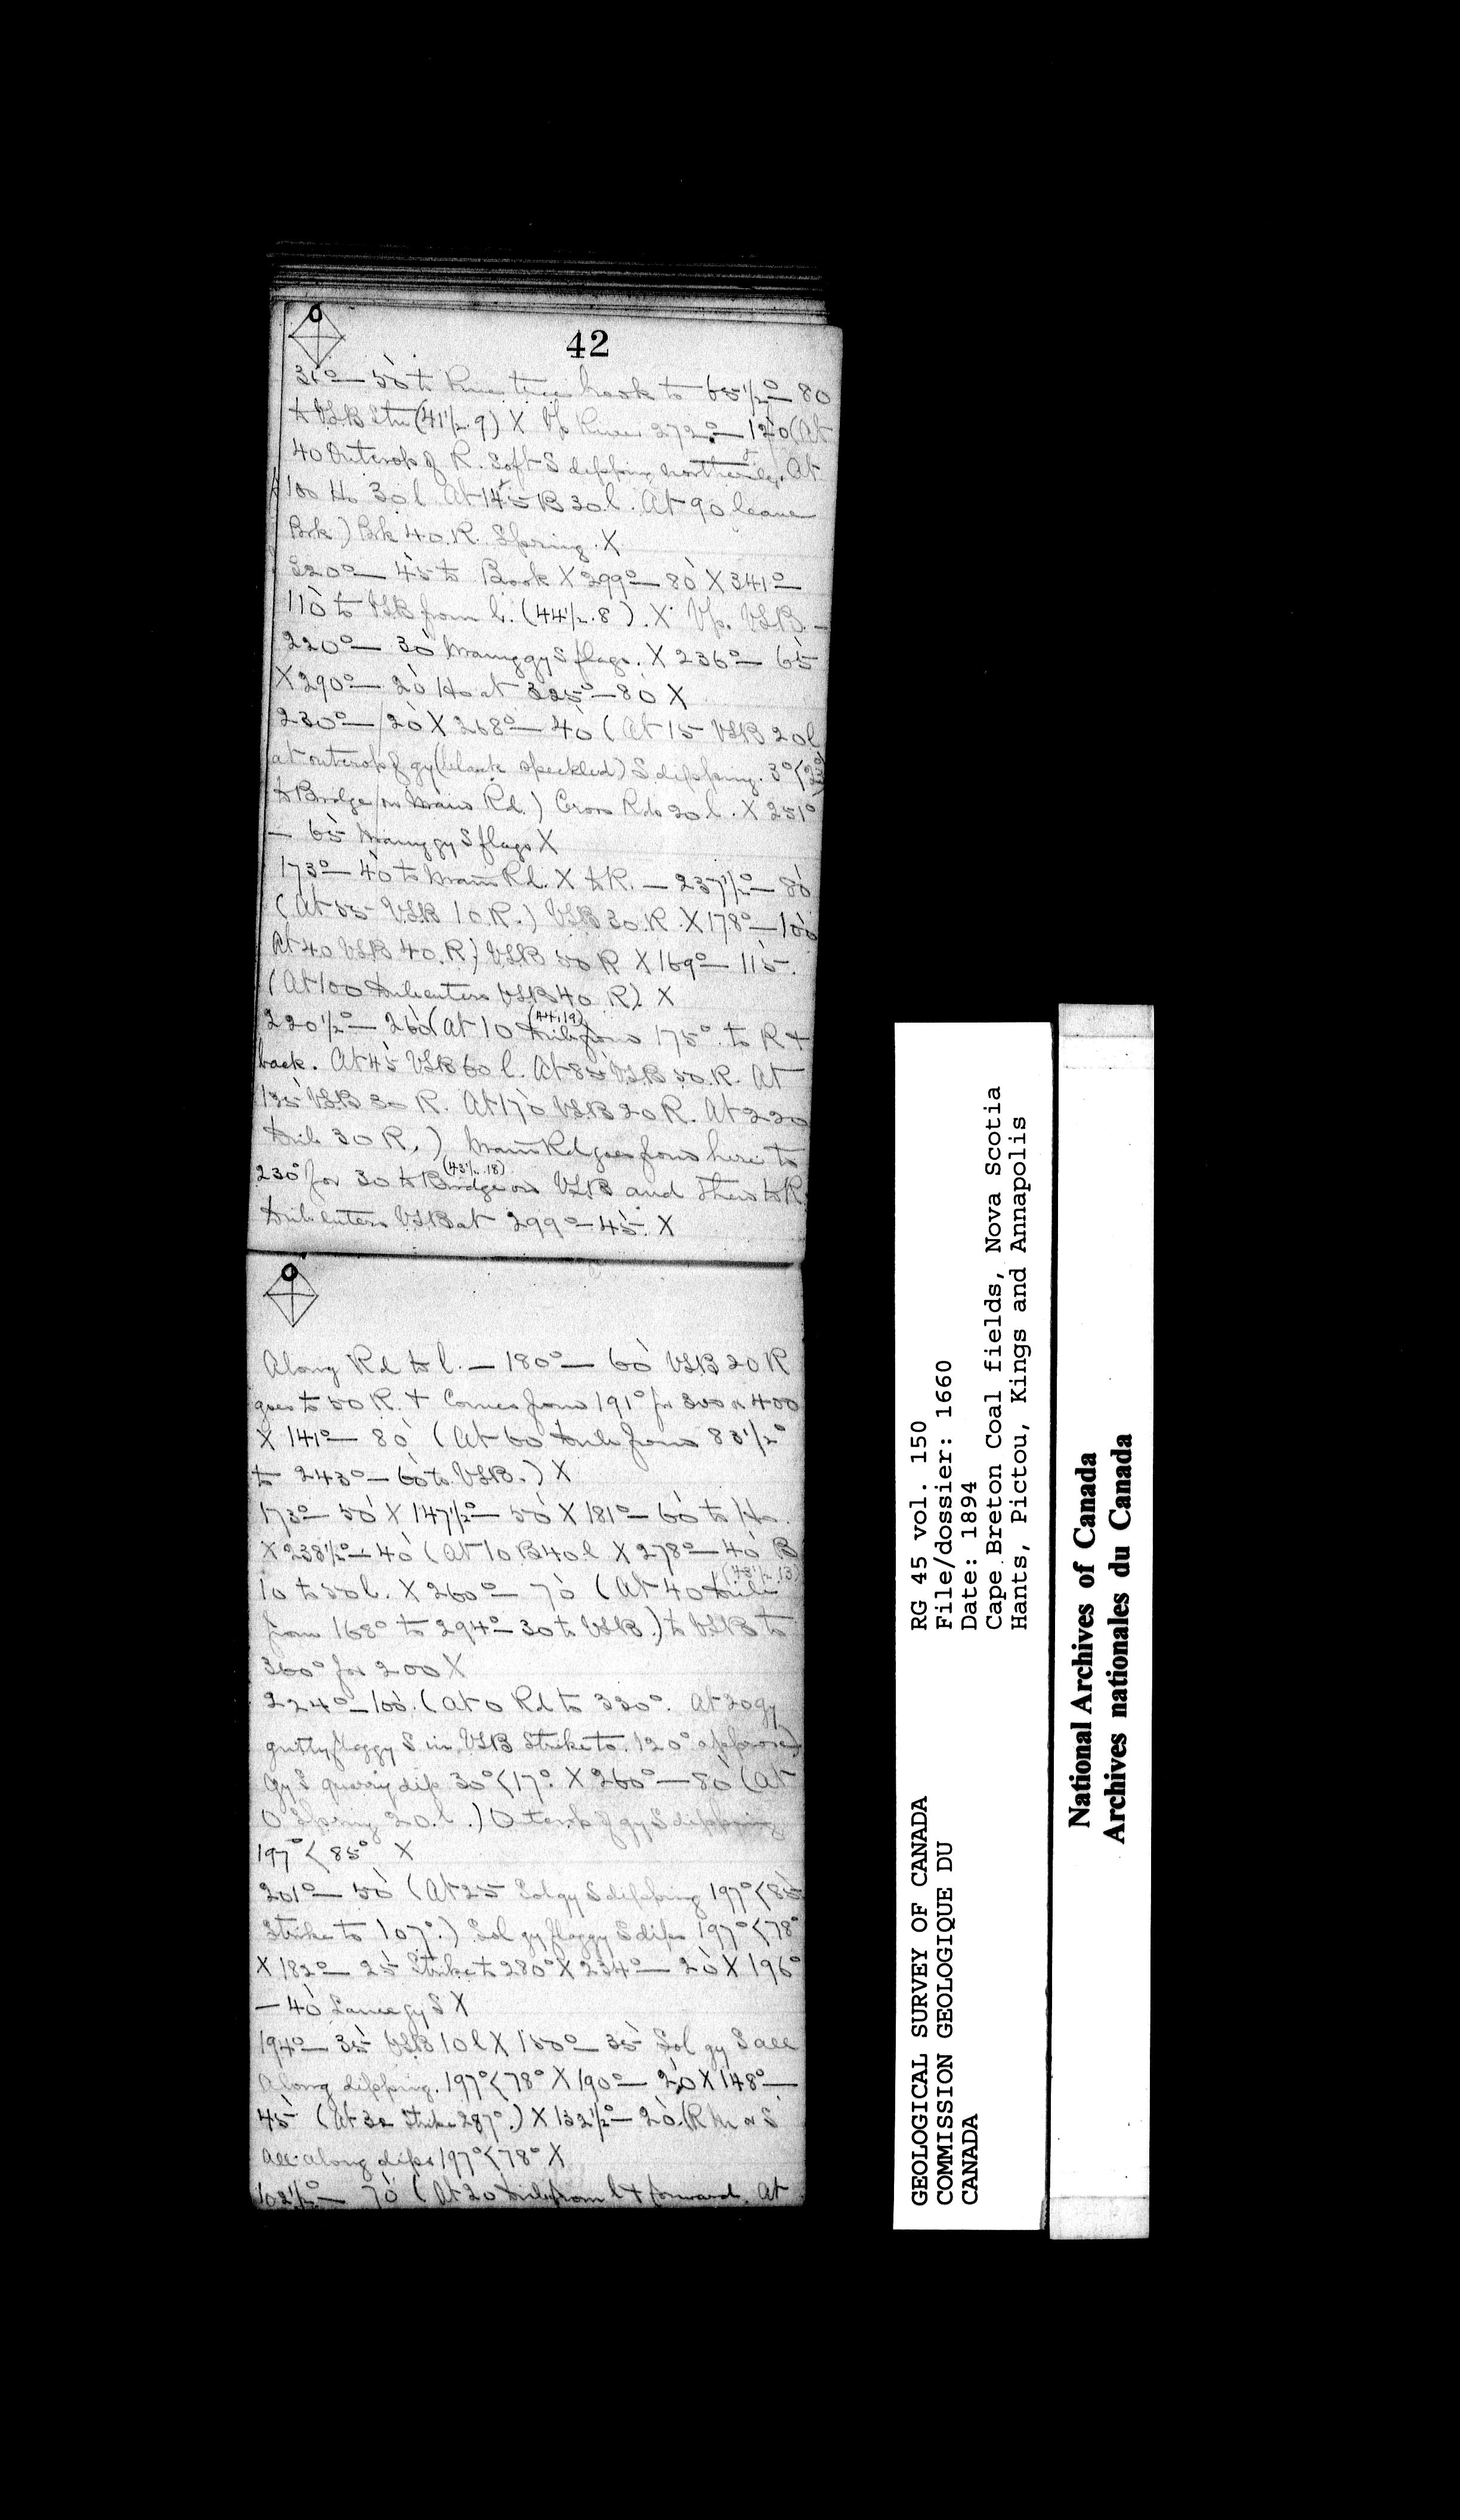 42
31°— 50 to River then back to 65½°— 80
to VSB Stn (41½.9) X Up River 272°— 120 (At
40 Outcrop of R. Soft S dipping northerly. At
100 Ho 30 l. At 145 B 30 l. At 90 leave
Brk) Brk 40 R. Spring. X
320°— 45 to Brook X 299°— 80 X 341°—
110 to VSB from l. (44½.8). X Up. VSB.—
220°— 30 Many gy S flags. X 236°— 65
X 290°— 20 Ho at 325°— 80 X
230°— 20 X 268°— 40 (At 15 VSB 20 l
at outcrop of gy (black speckled) S dipping. 3°<
to Bridge on Main Rd.) Cross Rds 20 l. X 251°
— 65 Many gy S flags X
173°— 40 to Main Rd. X to R.— 237½°— 80
(At 55 VSB 10 R.) VSB 30 R. X 178°— 100
At 40 VSB 40. R) VSB 50 R X 169°— 115.
(At 100 Trib enters VSB 40 R) X
220½°— 260 (At 10 Trib from 175° to R +
(44.19)
back. At 45 VSB 60 l. At 85 VSB 50 R. At
135 VSB 30 R. At 170 VSB 20 R. At 220
Trib 30 R.) Main Rd goes from here to
230° for 30 to Bridge on VSB and then to R.
(43½.18)
Trib enters VSB at 299°— 45. X
Along Rd to l.— 180°— 60 VSB 20 R
goes to 50 R. + Comes from 191° for 300 or 400
X 141°— 80 (At 60 Trib from 83½°
to 243°— 60 to VSB.) X
173°— 50 X 147½°— 50 X 181°— 60 to Ho.
X 238½°— 40 (At 10 B 40 l X 278°— 40 B
10 to 50 l. X 260°— 70 (At 40 Trib
(43½.13)
from 168° to 294°— 30 to VSB.) to VSB to
360° for 200 X
224°— 100. (At 0 Rd to 330°. At 20 gy
gritty flaggy S in VSB Strike to 120° approx)
Gy S quarry dip 30°<17°. X 260°— 80 (At
0 Spring 20. l.) Outcrop of gy S dipping
197°<85° X
201°— 50 (At 25 Sol gy S dipping 197°<85
Strike to 107°.) Sol gy flaggy S dips 197°<78°
X 182°— 25 Strike to 280° X 234°— 20 X 196°
— 40 Same gy S X
194°— 35 VSB 10 l X 150°— 35 Sol gy S all
along dipping. 197°<78° X 190°— 20 X 148°—
45 (At 30 Strike 287°.) X 132½°— 20. (R or S
all along dips 197°<78° X
102½°— 70 (At 20 Trib from l + forward. At
RG 45 vol. 150
File/dossier: 1660
Date: 1894
Cape Breton Coal fields, Nova Scotia
Hants, Pictou, Kings and Annapolis
GEOLOGICAL SURVEY OF CANADA
COMMISSION GEOLOGIQUE DU
CANADA
National Archives of Canada
Archives nationales du Canada